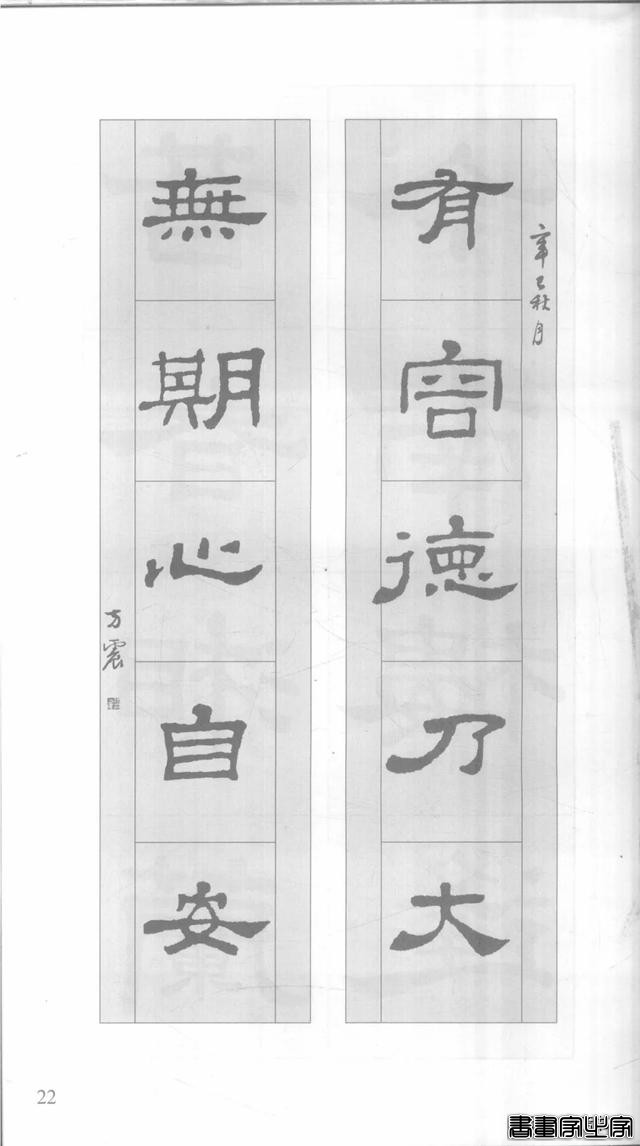 辛巳秋月
有容德乃大
無期心自安
方震
22
書畫家必字